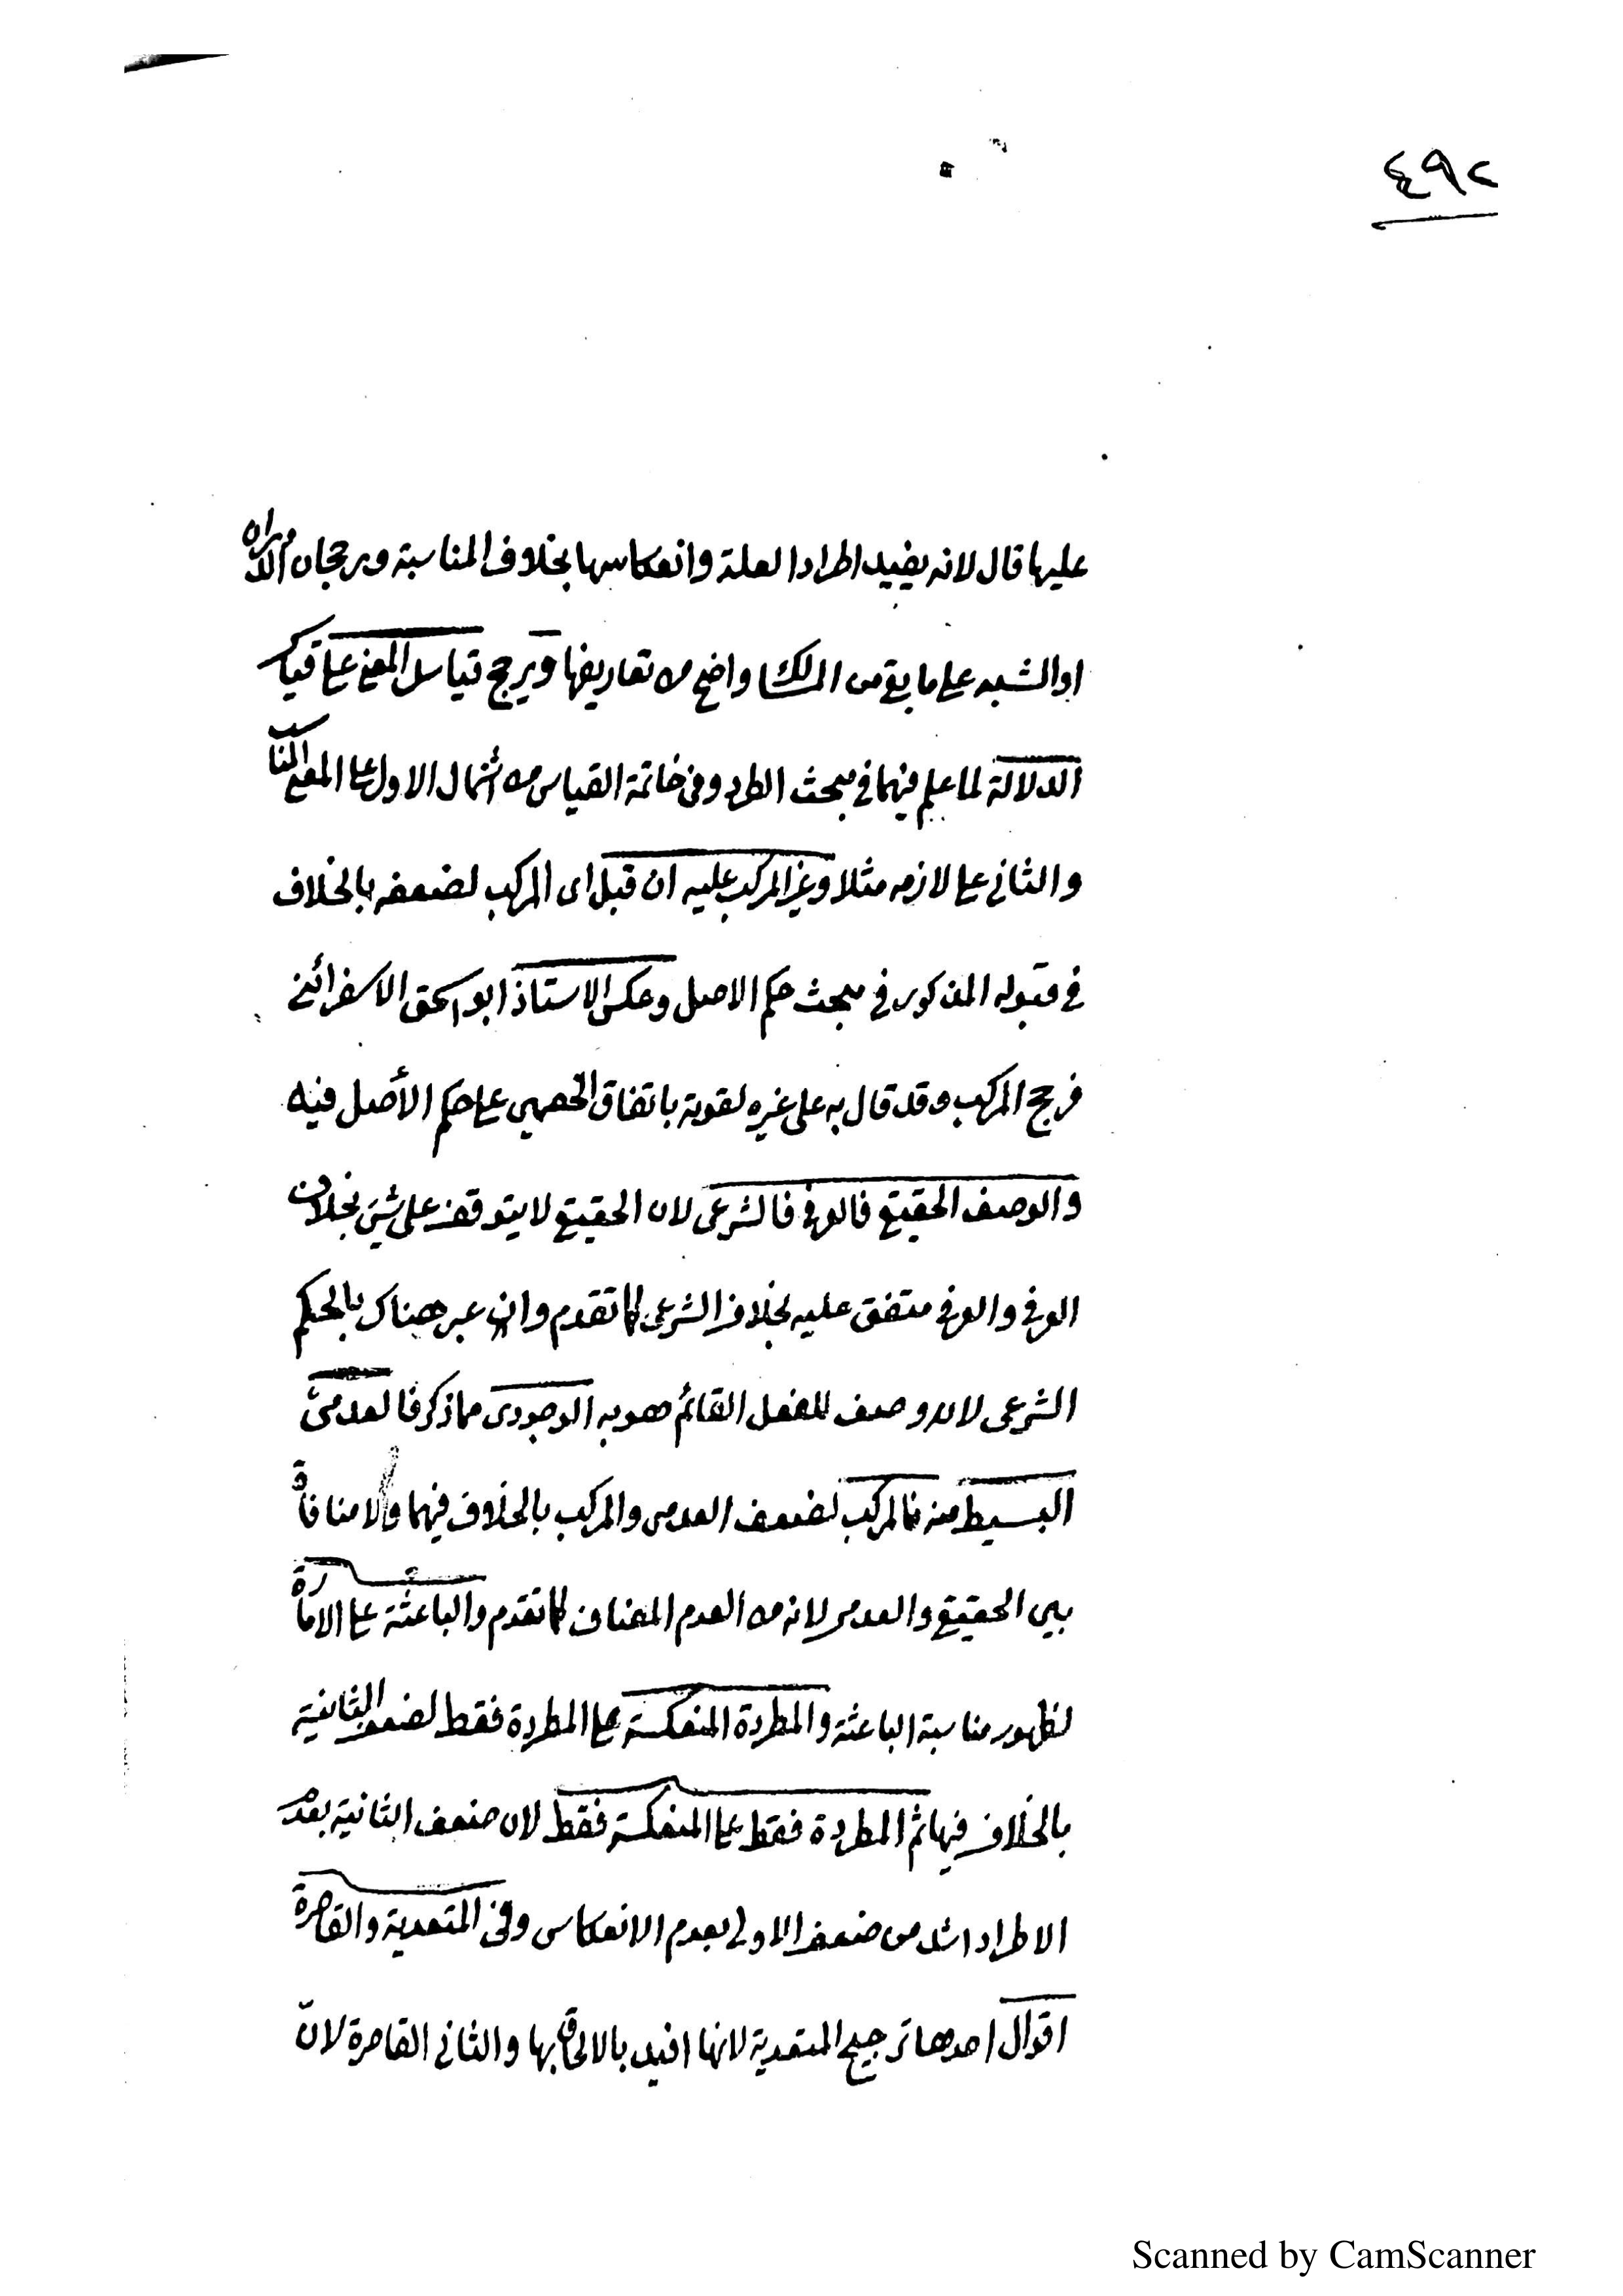 ٤٩٢
عليها قال لانه يفيد اطراد العلة وانعكاسها بخلاف المناسبة ورجحان الدوران
او الشبه على ما بقي من المسالك واضح من تعاريفها ويرجح قياس المعنى على قياس
الدلالة لما علم فيهما في مبحث الطرد وفي خاتمة القياس من اشتمال الاول على المعنى المناسب
والثاني على لازمه مثلا وغير المركب عليه ان قبل اى المركب لضعفه بالخلاف
في قبوله المذكور في مبحث حكم الاصل وعكس الاستاذ ابو اسحق الاسفرائني
فرجح المركب وقد قال به على غيره لقوته باتفاق الخصمين على حكم الأصل فيه
والوصف الحقيقي فالعرفي فالشرعى لان الحقيقي لا يتوقف على شئ بخلاف
العرفي والعرفي متفق عليه بخلاف الشرعى كما تقدم وان عبر هناك بالحكم
الشرعى لانه وصف للفعل القائم هو به الوجودى مما ذكر فالعدمى
البسيط منه فالمركب لضعف العدمى والمركب بالخلاف فيهما ولا منافاة
بين الحقيقي والعدمى لانه من العدم المضاف كما تقدم والباعثة على الامارة
لظهور مناسبة الباعثة والمطردة المنعكسة على المطردة فقط لضعف الثانية
بالخلاف فيها ثم المطردة فقط على المنعكسة فقط لان ضعف الثانية بعدم
الاطراد اشد من ضعف الاولى بعدم الانعكاس وفي المتعدية والقاصرة
اقوال احدها ترجيح المتعدية لانها افيد بالالحاق بها والثاني القاصرة لانّ
Scanned by CamScanner